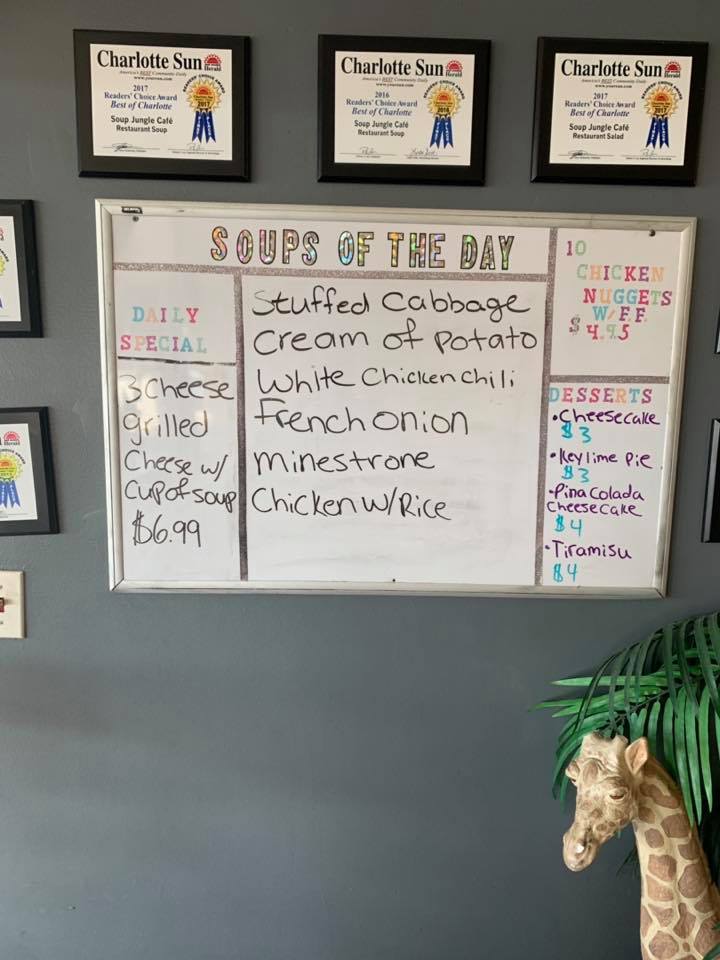 Charlotte Sun
Herald
America's BEST Community Daily
www.yoursun.com
2017
Readers' Choice Award
Best of Charlotte
Soup Jungle Café
Restaurant Soup
2017
Charlotte Sun
Herald
America's BEST Community Daily
www.yoursun.com
2016
Readers' Choice Award
Best of Charlotte
Soup Jungle Café
Restaurant Soup
2016
Charlotte Sun
Herald
America's BEST Community Daily
www.yoursun.com
2017
Readers' Choice Award
Best of Charlotte
Soup Jungle Café
Restaurant Salad
2017
SOUPS OF THE DAY
DAILY
SPECIAL
3 Cheese
grilled
Cheese w/
Cup of soup
$6.99
Stuffed Cabbage
Cream of Potato
White Chicken Chili
French Onion
Minestrone
Chicken w/Rice
10
CHICKEN
NUGGETS
W/F.F.
$4.95
DESSERTS
•Cheesecake
$3
•Key lime Pie
$3
•Pina Colada
Cheesecake
$4
•Tiramisu
$4